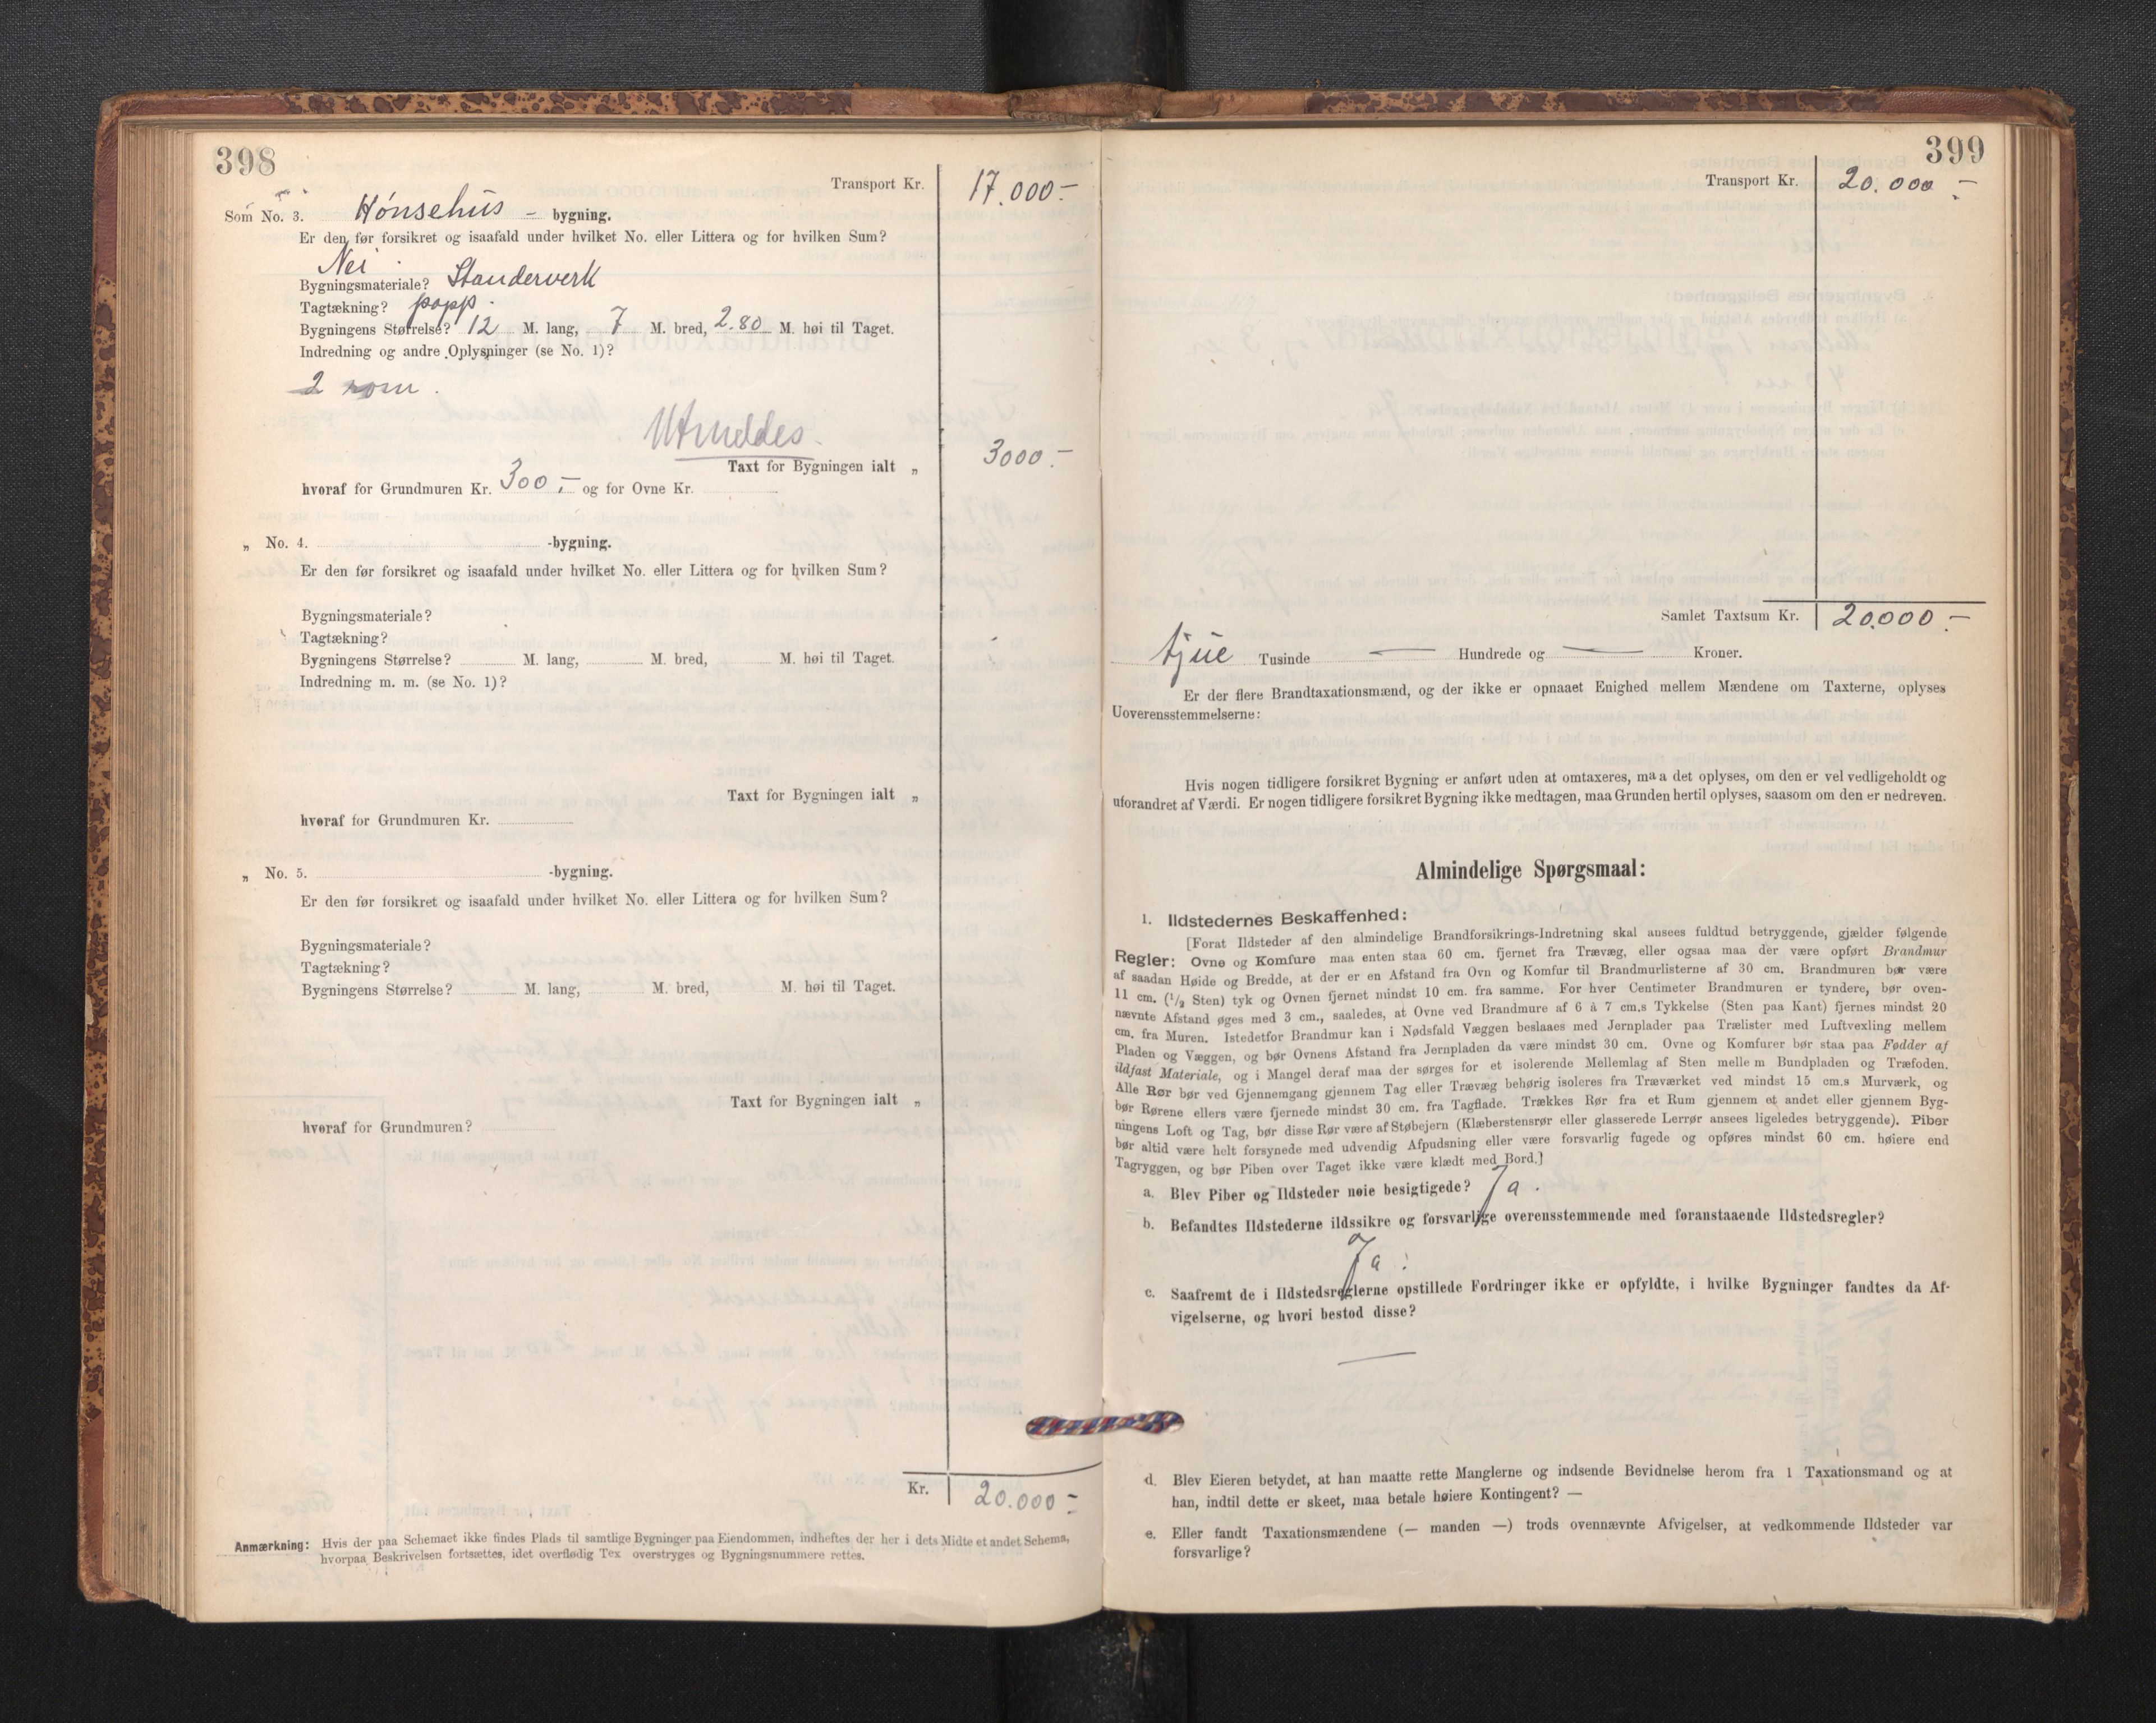 398
Transport Kr. 17.000.-
Som No. 3. Hönsehüs - bygning.
Er den før forsikret og isaafald under hvilket No. eller Littera og for hvilken Sum?
Nei.
Bygningsmateriale? Standerverk
Tagtækning? papp.
Bygningens Størrelse? 12 M. lang, 7 M. bred, 2.80 M. høi til Taget.
Indredning og andre Oplysninger (se No. 1)?
2 rom.
Utmeldes.
Taxt for Bygningen ialt „ 3000.-
hvoraf for Grundmuren Kr. 300,- og for Ovne Kr.
„ No. 4. -bygning.
Er den før forsikret og isaafald under hvilket No. eller Littera og for hvilken Sum?
Bygningsmateriale?
Tagtækning?
Bygningens Størrelse? M. lang, M. bred, M. høi til Taget.
Indredning m. m. (se No. 1)?
Taxt for Bygningen ialt „
hvoraf for Grundmuren Kr.
„ No. 5. -bygning.
Er den før forsikret og isaafald under hvilket No. eller Littera og for hvilken Sum?
Bygningsmateriale?
Tagtækning?
Bygningens Størrelse? M. lang, M. bred, M. høi til Taget.
Taxt for Bygningen ialt „
hvoraf for Grundmuren?
Kr. 20.000.-
Anmærkning: Hvis der paa Schemaet ikke findes Plads til samtlige Bygninger paa Eiendommen, indheftes der her i dets Midte et andet Schema,
hvorpaa Beskrivelsen fortsættes, idet overflødig Tex overstryges og Bygningsnummere rettes.
399
Transport Kr. 20.000 -
Samlet Taxtsum Kr. 20.000.-
tjue Tusinde — Hundrede og — Kroner.
Er der flere Brandtaxationsmænd, og der ikke er opnaaet Enighed mellem Mændene om Taxterne, oplyses
Uoverensstemmelserne:
Hvis nogen tidligere forsikret Bygning er anført uden at omtaxeres, maa det oplyses, om den er vel vedligeholdt og
uforandret af Værdi. Er nogen tidligere forsikret Bygning ikke medtagen, maa Grunden hertil oplyses, saasom om den er nedreven.
Almindelige Spørgsmaal:
1. Ildstedernes Beskaffenhed:
[Forat Ildsteder af den almindelige Brandforsikrings-Indretning skal ansees fuldtud betryggende, gjælder følgende
Regler: Ovne og Komfure maa enten staa 60 cm. fjernet fra Trævæg, eller ogsaa maa der være opført Brandmur
af saadan Høide og Bredde, at der er en Afstand fra Ovn og Komfur til Brandmurlisterne af 30 cm. Brandmuren bør være
11 cm. (1/2 Sten) tyk og Ovnen fjernet mindst 10 cm. fra samme. For hver Centimeter Brandmuren er tyndere, bør oven-
nævnte Afstand øges med 3 cm., saaledes, at Ovne ved Brandmure af 6 à 7 cm.s Tykkelse (Sten paa Kant) fjernes mindst 20
cm. fra Muren. Istedetfor Brandmur kan i Nødsfald Væggen beslaaes med Jernplader paa Trælister med Luftvexling mellem
Pladen og Væggen, og bør Ovnens Afstand fra Jernpladen da være mindst 30 cm. Ovne og Komfurer bør staa paa Fødder af
ildfast Materiale, og i Mangel deraf maa der sørges for et isolerende Mellemlag af Sten mellem Bundpladen og Træfoden.
Alle Rør bør ved Gjennemgang gjennem Tag eller Trævæg behørig isoleres fra Træværket ved mindst 15 cm.s Murværk, og
bør Rørene ellers være fjernede mindst 30 cm. fra Tagflade. Trækkes Rør fra et Rum gjennem et andet eller gjennem Byg-
ningens Loft og Tag, bør disse Rør være af Støbejern (Klæberstensrør eller glasserede Lerrør ansees ligeledes betryggende). Piber
bør altid være helt forsynede med udvendig Afpudsning eller være forsvarlig fugede og opføres mindst 60 cm. høiere end
Tagryggen, og bør Piben over Taget ikke være klædt med Bord.]
a. Blev Piber og Ildsteder nøie besigtigede? Ja.
b. Befandtes Ildstederne ildssikre og forsvarlige overensstemmende med foranstaaende Ildstedsregler?
Ja.
c. Saafremt de i Ildstedsreglerne opstillede Fordringer ikke er opfyldte, i hvilke Bygninger fandtes da Af-
vigelserne, og hvori bestod disse?
—
d. Blev Eieren betydet, at han maatte rette Manglerne og indsende Bevidnelse herom fra 1 Taxationsmand og at
han, indtil dette er skeet, maa betale høiere Kontingent? —
e. Eller fandt Taxationsmændene (— manden —) trods ovennævnte Afvigelser, at vedkommende Ildsteder var
forsvarlige?